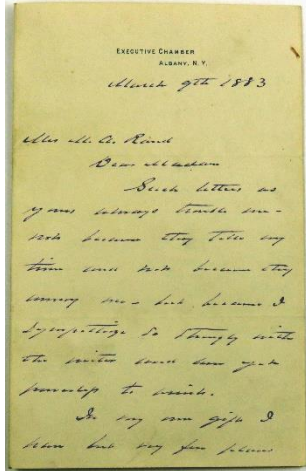 EXECUTIVE CHAMBER
ALBANY, N.Y.
March 9th 1883
Mrs M. A. Rand
Dear Madam
Such letters as
yours always trouble me -
not because they take my
time and not because they
annoy me - but because I
sympathize so strongly with
the writer and am yet
powerless to
In my own gift I
have but very few places